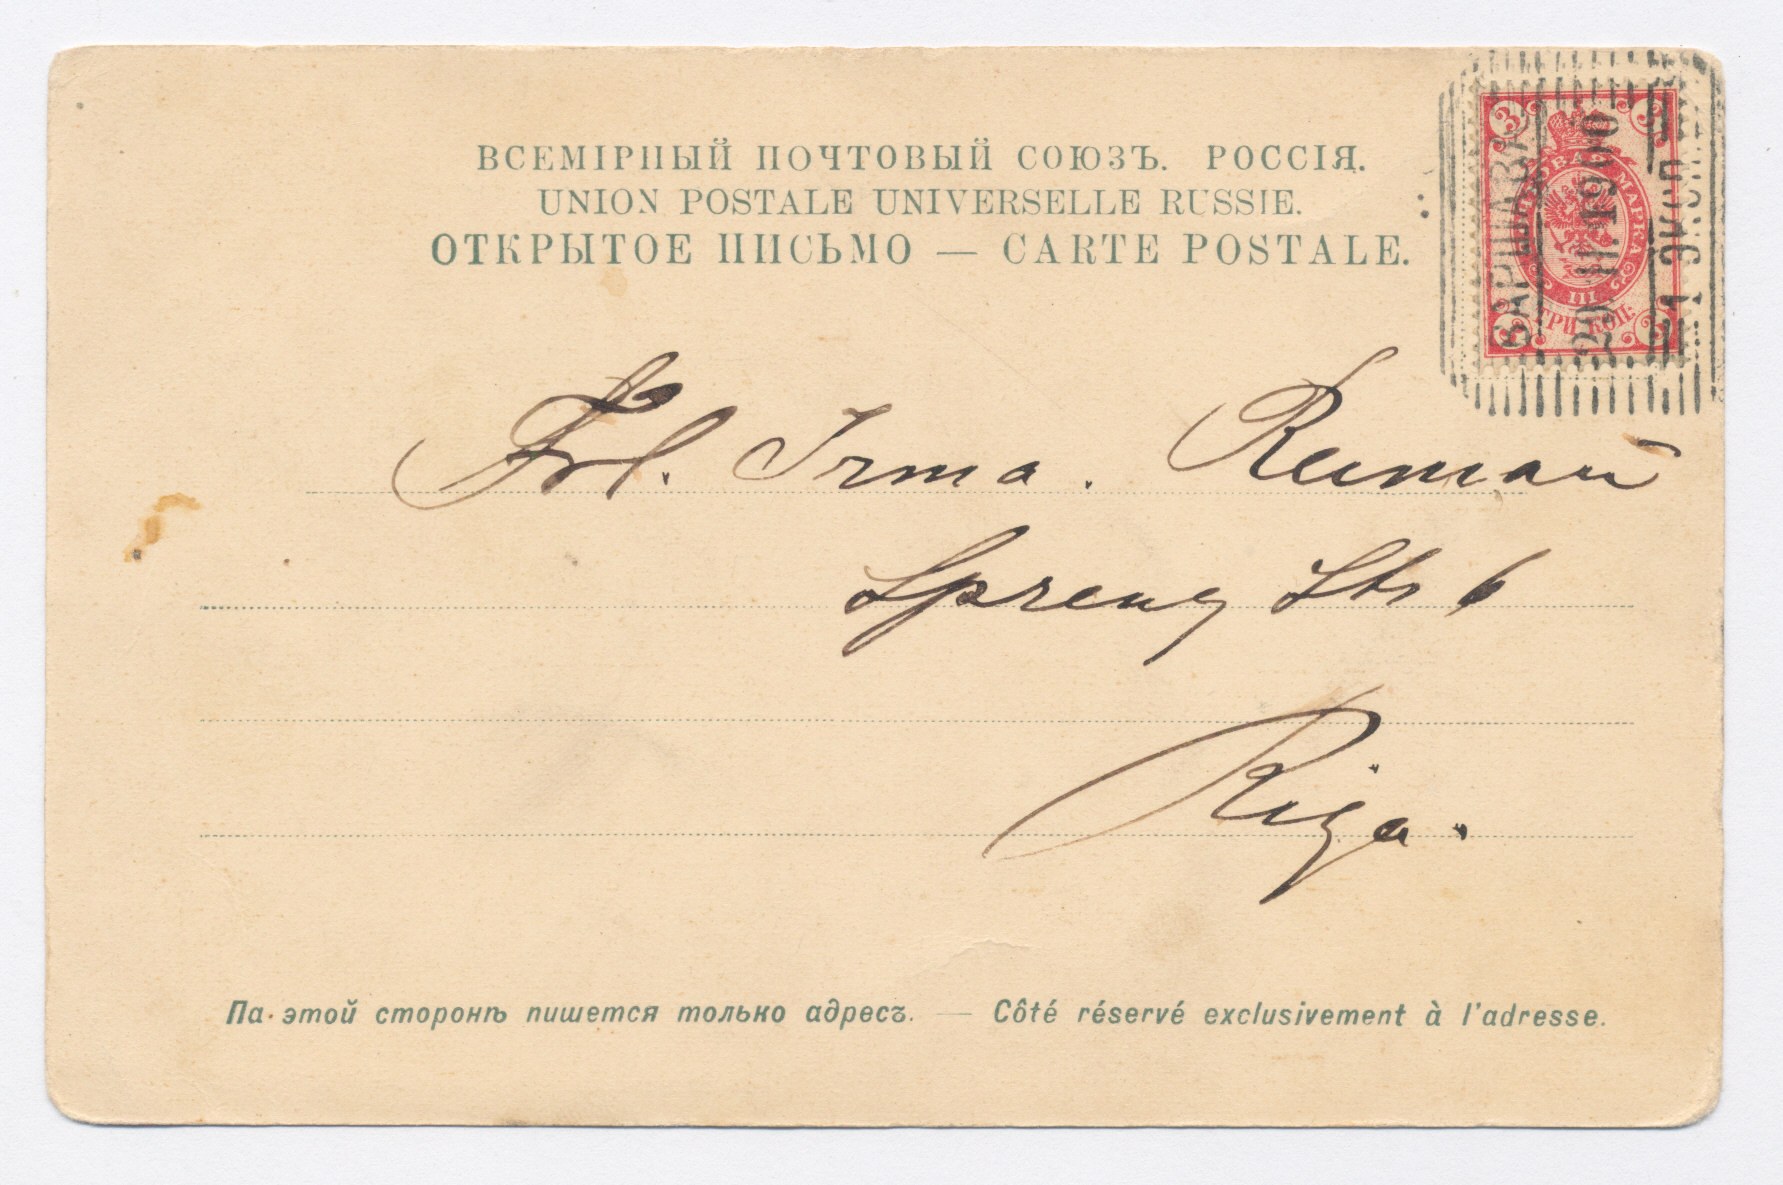 ВСЕМІРНЫЙ ПОЧТОВЫЙ СОЮЗЪ. РОССІЯ.
UNION POSTALE UNIVERSELLE RUSSIE.
ОТКРЫТОЕ ПИСЬМО — CARTE POSTALE.
3 3
ПОЧТОВАЯ МАРКА
III
ТРИ КОП.
3 3
ВАРШАВА
1900
Frl. Irma. Reimañ
Spreng Str 6
Riga.
На этой сторонѣ пишется только адресъ. — Côté réservé exclusivement à l'adresse.